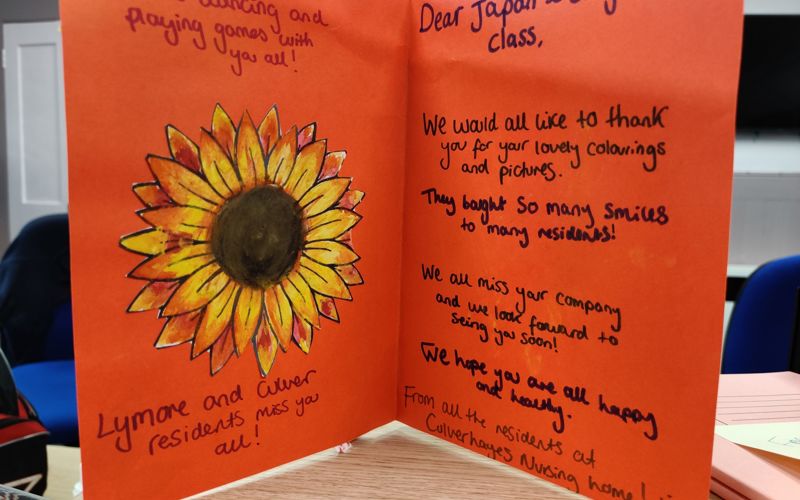 dancing and
playing games with
you all!
Lymore and Culver
residents miss you
all!
Dear Japan
class,
We would all like to thank
you for your lovely colourings
and pictures.
They bought so many smiles
to many residents!
We all miss your company
and we look forward to
seing you soon!
We hope you are all happy
and healthy.
From all the residents at
Culverhayes Nursing home